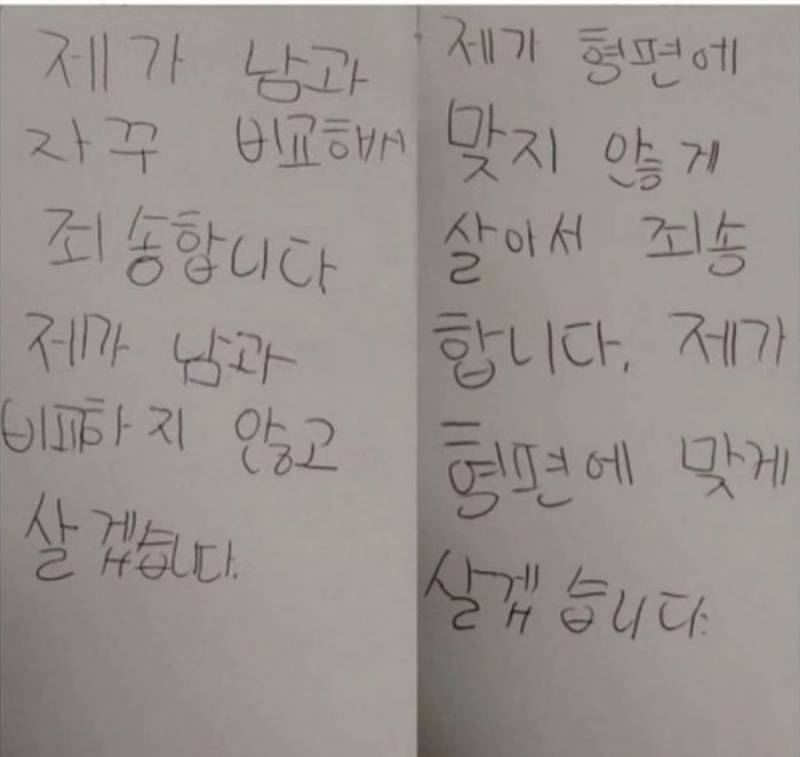 제가 남과
자꾸 비교해서
죄송합니다
제가 남과
비교하지 않고
살겠습니다.
제가 형편에
맞지 않게
살아서 죄송
합니다. 제가
형편에 맞게
살겠습니다.